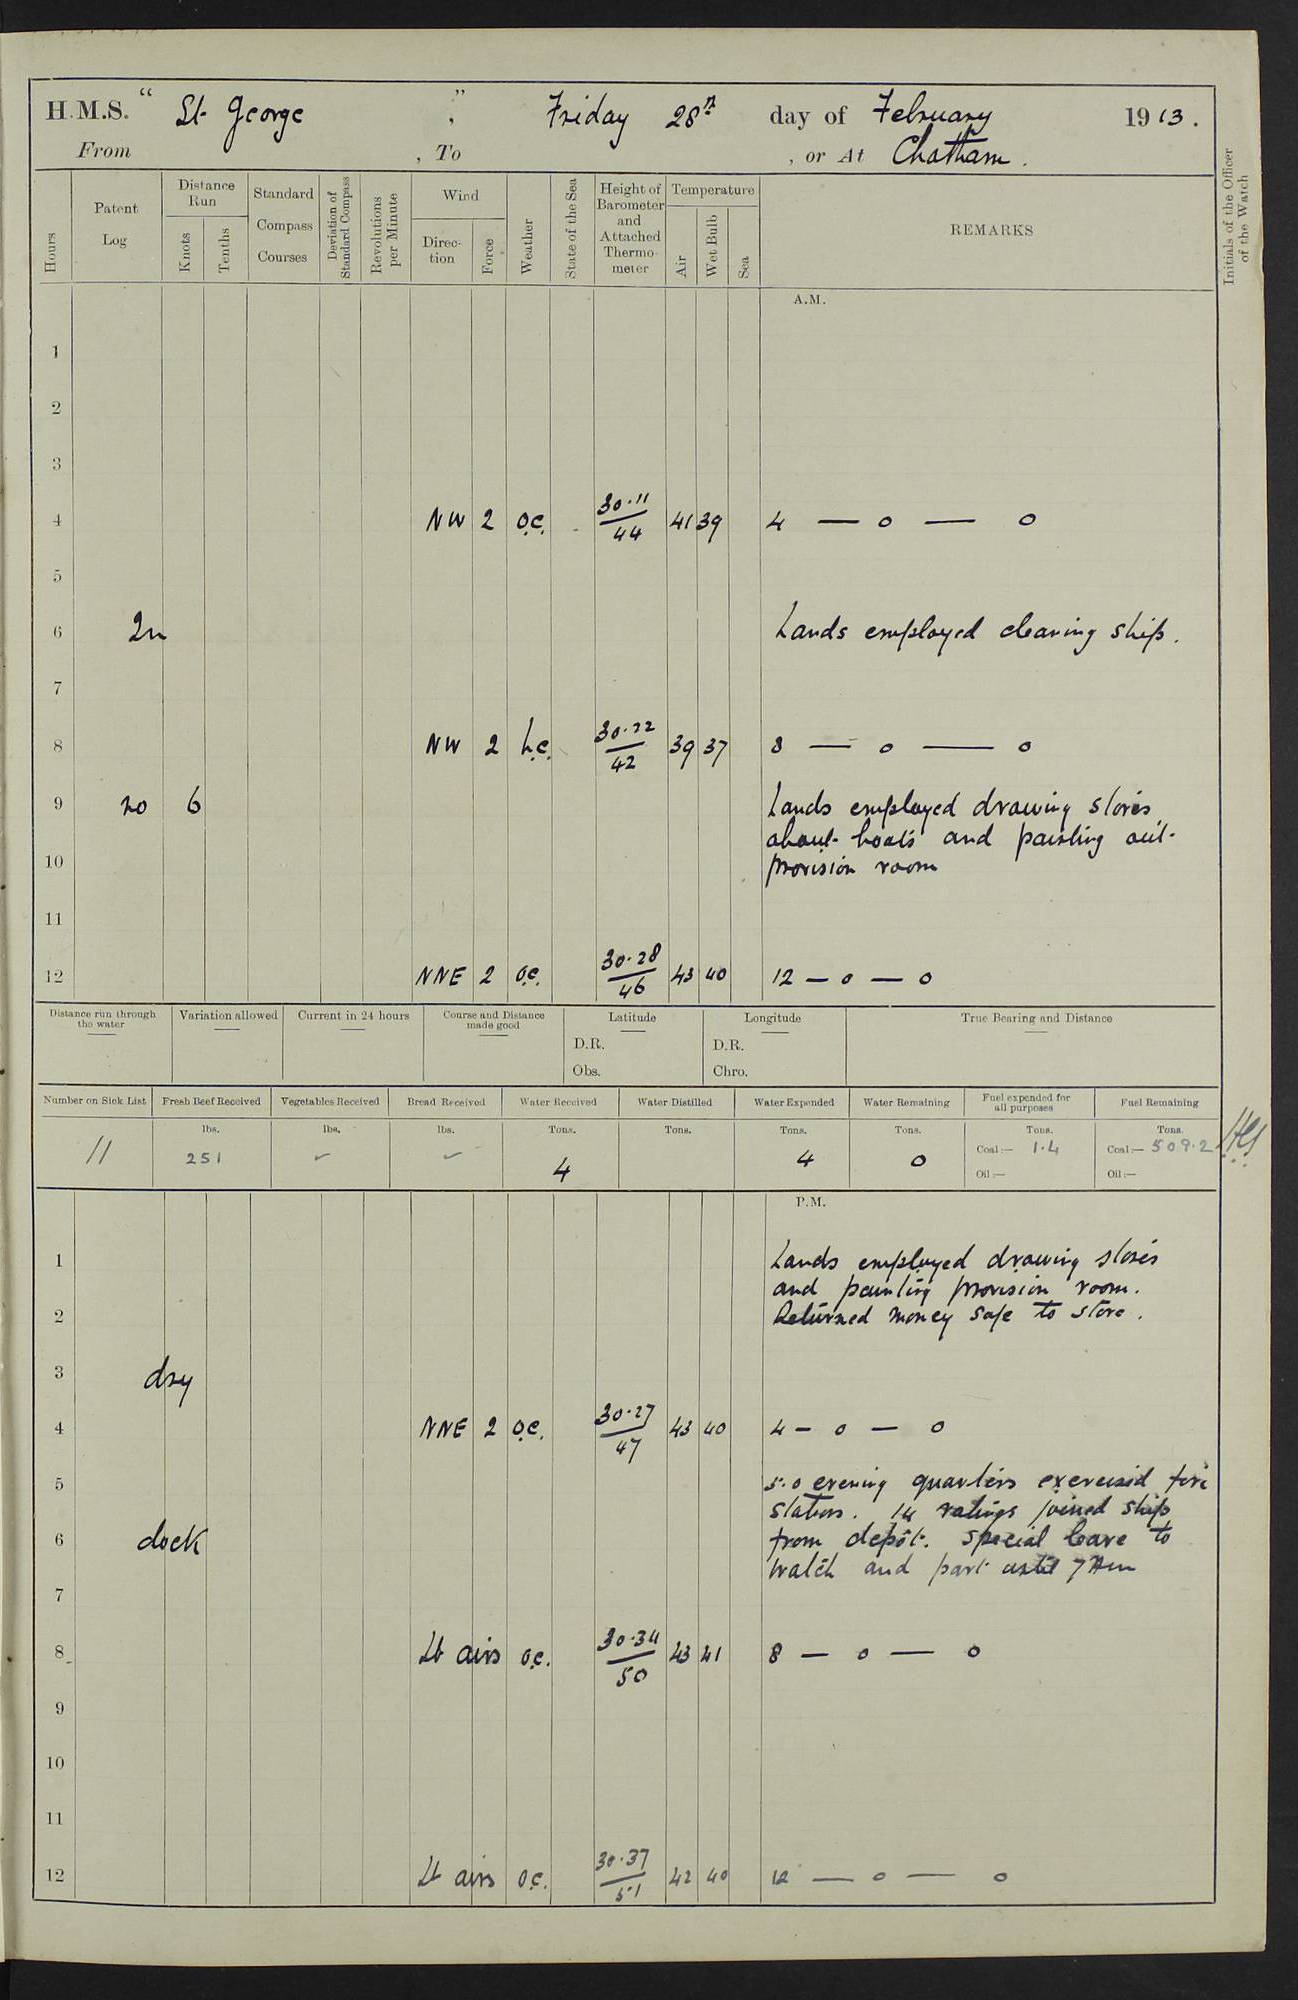 H.M.S. " St George ", Friday 28th day of February 1913.
From , To , or At Chatham.
Hours
Patent Log
Distance Run
Knots
Tenths
Standard Compass Courses
Deviation of Standard Compass
Revolutions per Minute
Wind
Direc-tion
Force
Weather
State of the Sea
Height of Barometer and Attached Thermo-meter
Temperature
Air
Wet Bulb
Sea
REMARKS
Initials of the Officer of the Watch
A.M.
1
2
3
4 NW 2 o.c. 30.11/44 41 39 4 — o — o
5
6 In Hands employed cleaning ship.
7
8 NW 2 b.c. 30.22/42 39 37 8 — o — o
9 no 6 Hands employed drawing stores
about boats and painting out
10 provision room
11
12 NNE 2 o.c. 30.28/46 43 40 12 — o — o
Distance run through the water
Variation allowed
Current in 24 hours
Course and Distance made good
Latitude
D.R.
Obs.
Longitude
D.R.
Chro.
True Bearing and Distance
Number on Sick List Fresh Beef Received Vegetables Received Bread Received Water Received Water Distilled Water Expended Water Remaining Fuel expended for all purposes Fuel Remaining
lbs. lbs. lbs. Tons. Tons. Tons. Tons. Tons. Tons.
11 251 ✓ ✓ 4 4 0 Coal:— 1.4 Coal:— 509.2
Oil:— Oil:—
P.M.
1 Hands employed drawing stores
and painting provision room.
2 Returned money safe to store.
3 dry
4 NNE 2 o.c. 30.27/47 43 40 4 — o — o
5 5.0 evening quarters exercised fire
stations. 14 ratings joined ship
6 dock from depôt. Special leave to
watch and part until 7 Am
7
8 Lt airs o.c. 30.34/50 43 41 8 — o — o
9
10
11
12 Lt airs o.c. 30.37/51 42 40 12 — o — o